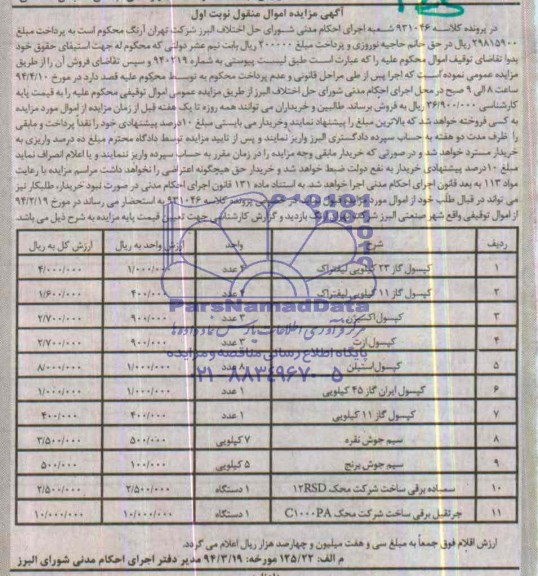 آگهی مزایده اموال منقول نوبت اول
در پرونده کلاسه ۹۳۱۰۴۶ شعبه اجرای احکام مدنی شورای حل اختلاف البرز شرکت تهران آرنگ محکوم است به پرداخت مبلغ
۲۹۸۱۵۹۰۰ ریال در حق خانم حاجیه نوروزی و پرداخت مبلغ ۲۰۰۰۰۰ ریال بابت نیم عشر دولتی که محکوم له جهت استیفای حقوق خود
بدوا تقاضای توقیف اموال محکوم علیه را که عبارت است طبق لیست پیوستی به شماره ۹۴۰۲۱۹ و سپس تقاضای فروش آن را از طریق
مزایده عمومی نموده است که اجرا پس از طی مراحل قانونی و عدم پرداخت محکوم به توسط محکوم علیه قصد دارد در مورخ ۹۴/۴/۱۰
ساعت ۸ الی ۹ صبح در محل اجرای احکام مدنی شورای حل اختلاف البرز از طریق مزایده عمومی اموال توقیفی محکوم علیه را به قیمت پایه
کارشناسی ۳۶/۹۰۰/۰۰۰ ریال به فروش برساند. طالبین و خریداران می توانند همه روزه تا یک هفته قبل از زمان مزایده از اموال مورد مزایده
به کسی فروخته خواهد شد که بالاترین مبلغ را پیشنهاد نمایند و خریدار می بایستی مبلغ ۱۰ درصد پیشنهادی خود را نقداً پرداخت و مابقی
را ظرف مدت دو هفته به حساب سپرده دادگستری البرز واریز نمایند و پس از تایید مزایده توسط دادگاه محترم مبلغ ده درصد واریزی به
خریدار مسترد خواهد شد و در صورتی که خریدار مابقی وجه مزایده را در زمان مقرر به حساب سپرده واریز ننمایند و یا اعلام انصراف نماید
مبلغ ۱۰ درصد پیشنهادی خریدار به نفع دولت ضبط خواهد شد و خریدار حق هیچگونه اعتراضی را نخواهد داشت مراسم مزایده با رعایت
مواد ۱۱۳ به بعد قانون اجرای احکام مدنی اجرا خواهد شد. به استناد ماده ۱۳۱ قانون اجرای احکام مدنی در صورت نبود خریدار، طلبکار نیز
می تواند در قبال طلب خود از اموال مورد مزایده پرونده کلاسه ۹۳۱۰۴۶ به استحضار می رساند در مورخ ۹۴/۲/۱۹
از اموال توقیفی واقع شهر صنعتی البرز شرکت تهران آرنگ بازدید و گزارش کارشناسی جهت تعیین قیمت پایه مزایده به شرح ذیل می باشد.
ردیف شرح واحد ارزش واحد به ریال ارزش کل به ریال
۱ کپسول گاز ۲۳ کیلویی لیفتراک ۴ عدد ۱/۰۰۰/۰۰۰ ۴/۰۰۰/۰۰۰
۲ کپسول گاز ۱۱ کیلویی لیفتراک ۴ عدد ۴۰۰/۰۰۰ ۱/۶۰۰/۰۰۰
۳ کپسول اکسیژن ۳ عدد ۹۰۰/۰۰۰ ۲/۷۰۰/۰۰۰
۴ کپسول ازت ۳ عدد ۹۰۰/۰۰۰ ۲/۷۰۰/۰۰۰
۵ کپسول استیلن ۸ عدد ۱/۰۰۰/۰۰۰ ۸/۰۰۰/۰۰۰
۶ کپسول ایران گاز ۴۵ کیلویی ۱ عدد ۱/۰۰۰/۰۰۰ ۱/۰۰۰/۰۰۰
۷ کپسول گاز ۱۱ کیلویی ۱ عدد ۴۰۰/۰۰۰ ۴۰۰/۰۰۰
۸ سیم جوش نقره ۷ کیلویی ۵۰۰/۰۰۰ ۳/۵۰۰/۰۰۰
۹ سیم جوش برنج ۵ کیلویی ۱۰۰/۰۰۰ ۵۰۰/۰۰۰
۱۰ سمباده برقی ساخت شرکت محک ۱۲RSD ۱ دستگاه ۲/۵۰۰/۰۰۰ ۲/۵۰۰/۰۰۰
۱۱ جرثقیل برقی ساخت شرکت محک C۱۰۰۰PA ۱ دستگاه ۱۰/۰۰۰/۰۰۰ ۱۰/۰۰۰/۰۰۰
ParsNamadData
پایگاه اطلاع رسانی مناقصه و مزایده
۰۲۱-۸۸۳۴۹۶۷۰-۵
ارزش اقلام فوق جمعاً به مبلغ سی و هفت میلیون و چهارصد هزار ریال اعلام می گردد.
م الف: ۱۳۵/۲۲ مورخه: ۹۴/۳/۱۹ مدیر دفتر اجرای احکام مدنی شورای البرز